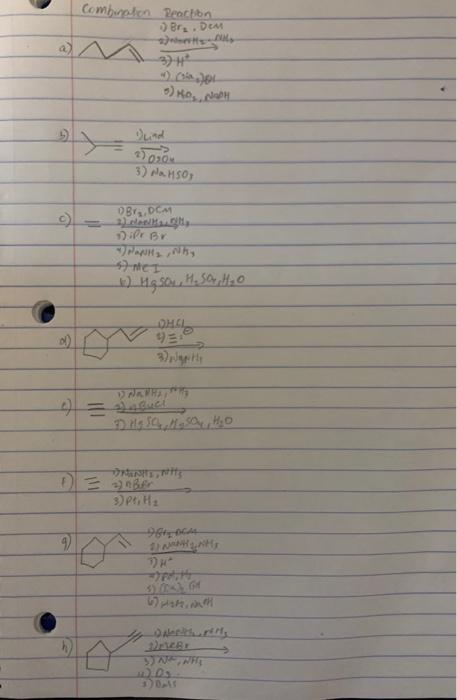 Combination Reaction
a)
1) Br₂, DCM
2) NaNH₂, NH₃
3) H⁺
4) (Sia₂)BH
5) H₂O₂, NaOH
b)
1) Lind
2) OsO₄
3) NaHSO₃
c)
1) Br₂, DCM
2) NaNH₂, NH₃
3) iPr Br
4) NaNH₂, NH₃
5) MeI
6) HgSO₄, H₂SO₄, H₂O
d)
1) HCl
2)
3)
e)
1) NaNH₂, NH₃
2) nBuCl
3) HgSO₄, H₂SO₄, H₂O
f)
1) NaNH₂, NH₃
2) nBuBr
3) Pt, H₂
g)
1) Br₂, DCM
2) NaNH₂, NH₃
3) H⁺
4)
5)
6) H₂O₂, NaOH
h)
1) NaNH₂, NH₃
2) MeBr
3) Na, NH₃
4) O₃
5) DMS